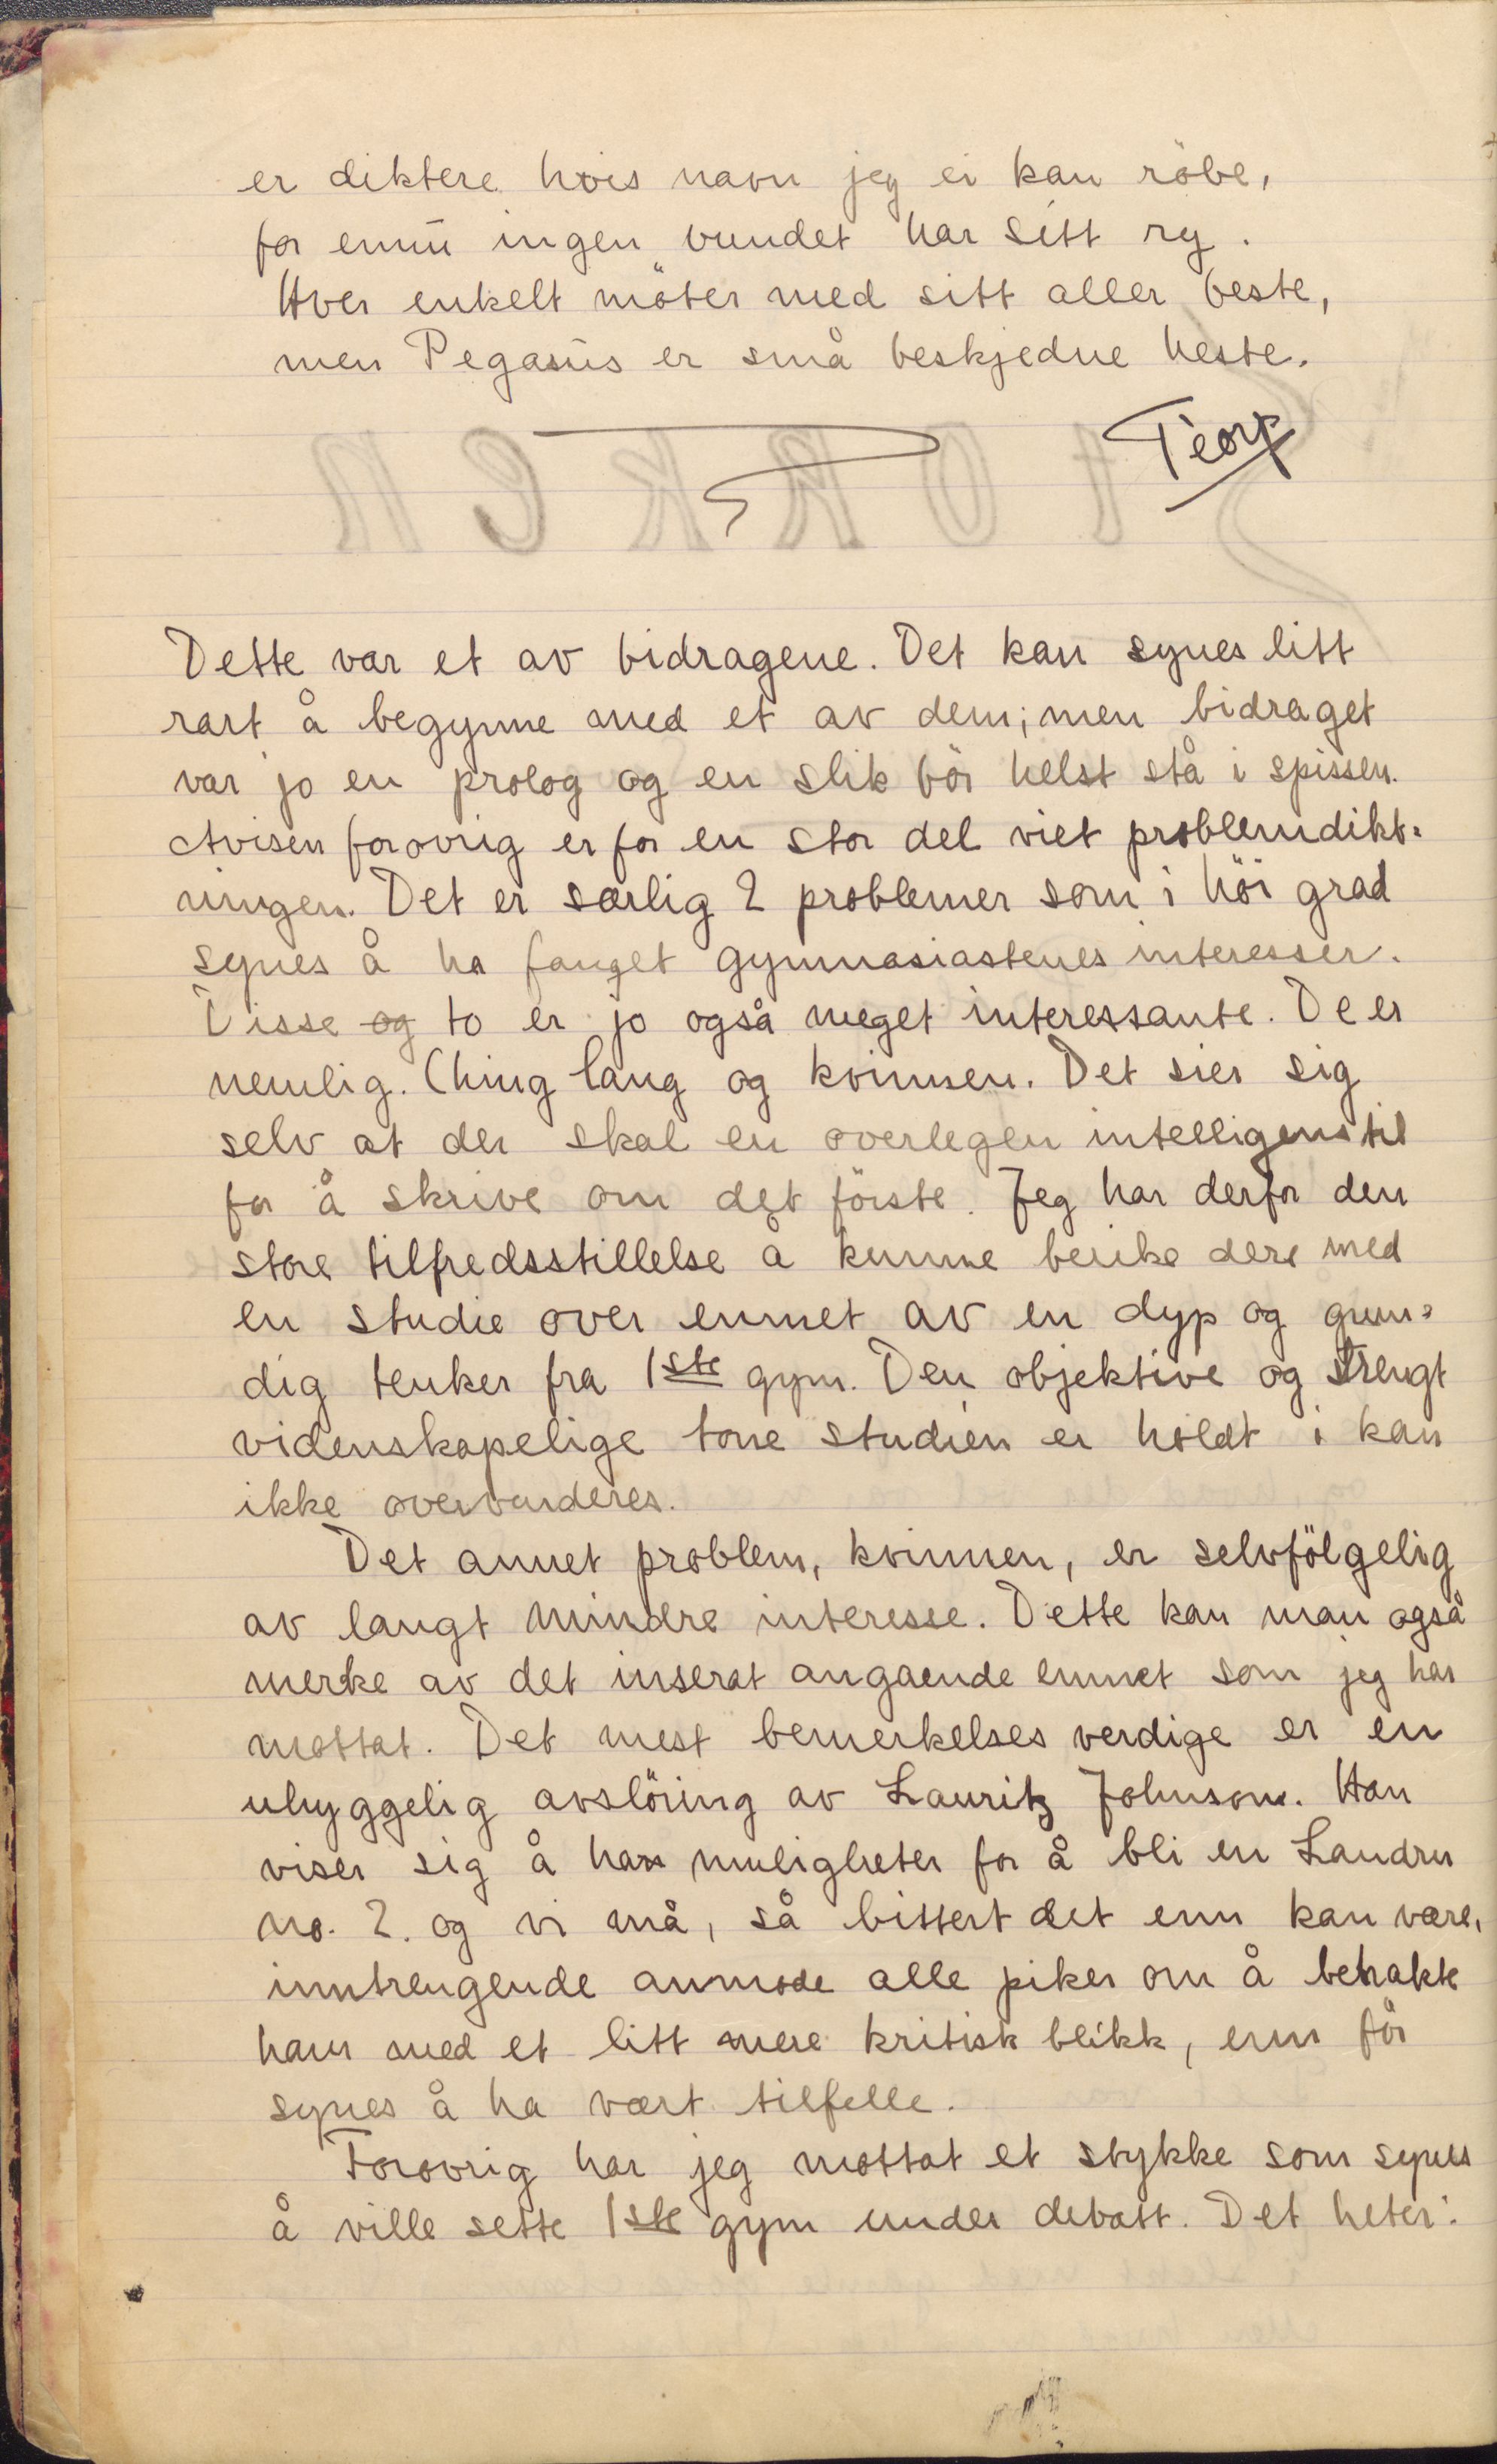 er diktere hvis navn jeg ei kan röbe,
for ennu ingen vundet har sitt ry.
Hver enkelt möter med sitt aller beste,
men Pegasus er små beskjedne heste.
Teorp
Dette var et av bidragene. Det kan synes litt
rart å begynne med et av dem; men bidraget
var jo en prolog og en slik bör helst stå i spissen.
Avisen forovrig er for en stor del viet problemdikt=
ningen. Det er særlig 2 problemer som i höi grad
synes å ha fanget gymnasiastenes interesser.
Disse og to er jo også meget interessante. De er
nemlig. Ching lang og kvinnen. Det sier sig
selv at der skal en overlegen intelligens til
for å skrive om det förste. Jeg har derfor den
store tilfredsstillelse å kunne berike dere med
en studie over emnet av en dyp og grun=
dig tenker fra 1ste gym. Den objektive og strengt
videnskapelige tone studien er holdt i kan
ikke overvurderes.
Det annet problem, kvinnen, er selvfölgelig
av langt mindre interesse. Dette kan man også
merke av det inserat angaende emnet som jeg har
mottat. Det mest bemerkelses verdige er en
uhyggelig avslöring av Lauritz Johnson. Han
viser sig å ha muligheter for å bli en Landru
no. 2. og vi må, så bittert det enn kan være,
inntrengende anmode alle piker om å betrakte
ham med et litt mere kritisk blikk, enn för
synes å ha vært tilfelle.
Forovrig har jeg mottat et stykke som synes
å ville sette 1ste gym under debatt. Det heter: